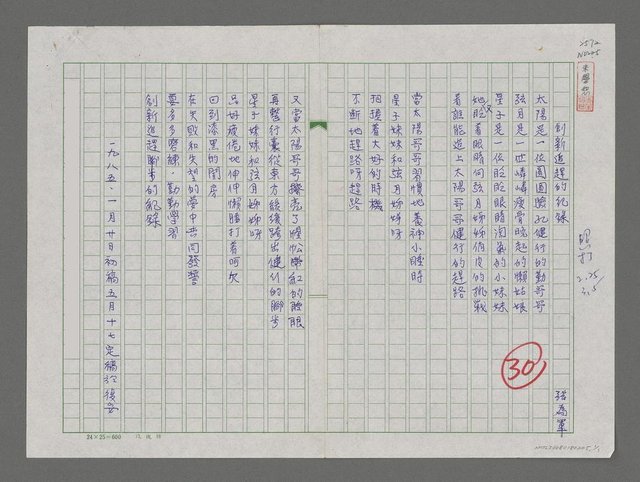 創新追趕的紀錄
張為軍
太陽是一位圓圓臉孔健行的勤哥哥
弦月是一世嶙嶙瘦骨晚起的懶姑娘
星子是一位眨眨眼睛淘氣的小妹妹
她眨着眼睛向弦月姊姊俏皮的挑戰
看誰能追上太陽哥哥健行的趕路
當太陽哥哥習慣地養神小睡時
星子妹妹和弦月姊姊呀
把握着大好的時機
不斷地趕路呀趕路
又當太陽哥哥擦亮了惺忪的臉眼
再整行囊從東方跨出健行的腳步
星子妹妹和弦月姊姊呀
只好疲倦地伸伸懶腰打着呵欠
回到漆黑的閨房
在失敗和失望的夢中共同發誓
要多多磨練，勤勤學習
創新追趕腳步的紀錄
一九八五、一月廿日初稿五月十七定稿於後
30
24×25=600